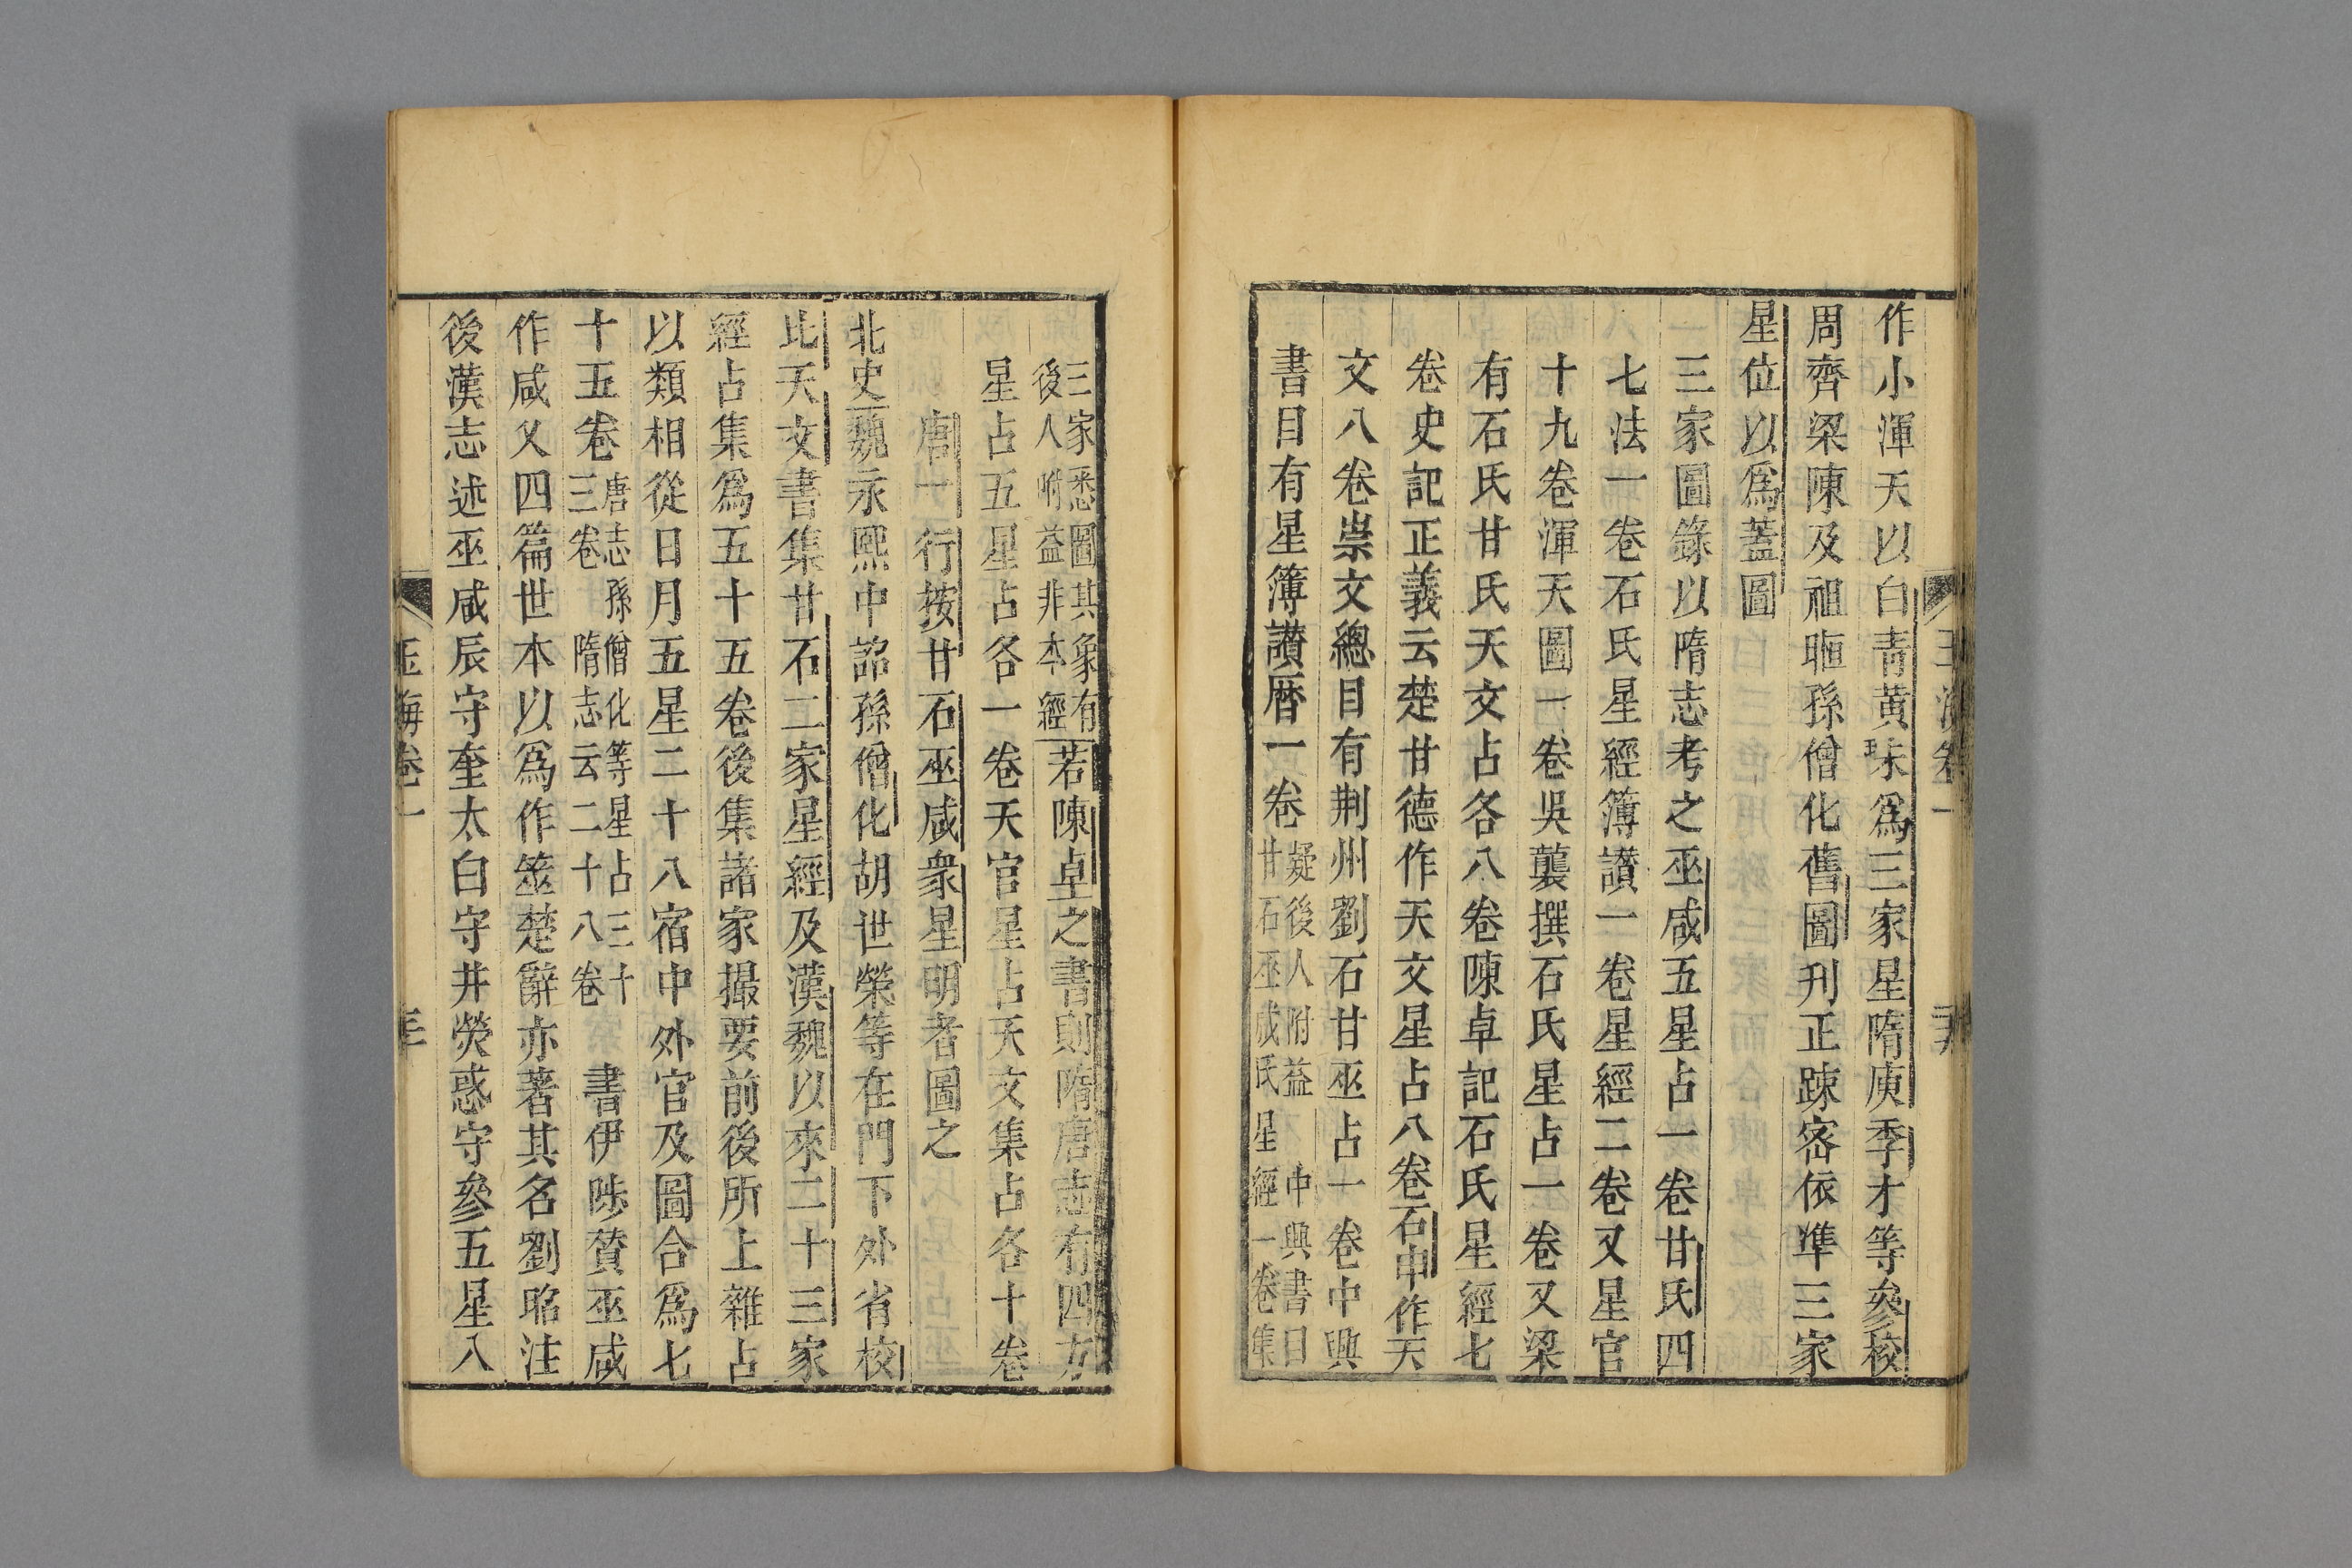 作小渾天以白青黃珠爲三家星隋庾季才等參校
周齊梁陳及祖暅孫僧化舊圖刋正踈宻依凖三家
星位以爲蓋圖
三家圖錄以隋志考之巫咸五星占一卷甘氏四
七法一卷石氏星經簿讃一卷星經二卷又星官
十九卷渾天圖一卷吳襲撰石氏星占一卷又梁
有石氏甘氏天文占各八卷陳卓記石氏星經七
卷史記正義云楚甘德作天文星占八卷石申作天
文八卷崇文總目有荆州劉石甘巫占一卷中興
書目有星簿讃曆一卷
疑後人附益 中興書目
甘石巫咸氏星經一卷集
三家悉圖其象有
後人附益非本經
若陳卓之書則隋唐志有四方
星占五星占各一卷天官星占天文集占各十卷
唐一行按甘石巫咸衆星明者圖之
北史魏永熙中詔孫僧化胡世榮等在門下外省校
比天文書集甘石二家星經及漢魏以來二十三家
經占集爲五十五卷後集諸家撮要前後所上雜占
以類相從日月五星二十八宿中外官及圖合爲七
十五卷
唐志孫僧化等星占三十
三卷 隋志云二十八卷
書伊陟贊巫咸
作咸乂四篇世本以爲作筮楚辭亦著其名劉昭注
後漢志述巫咸辰守奎太白守井熒惑守參五星入
玉海卷一